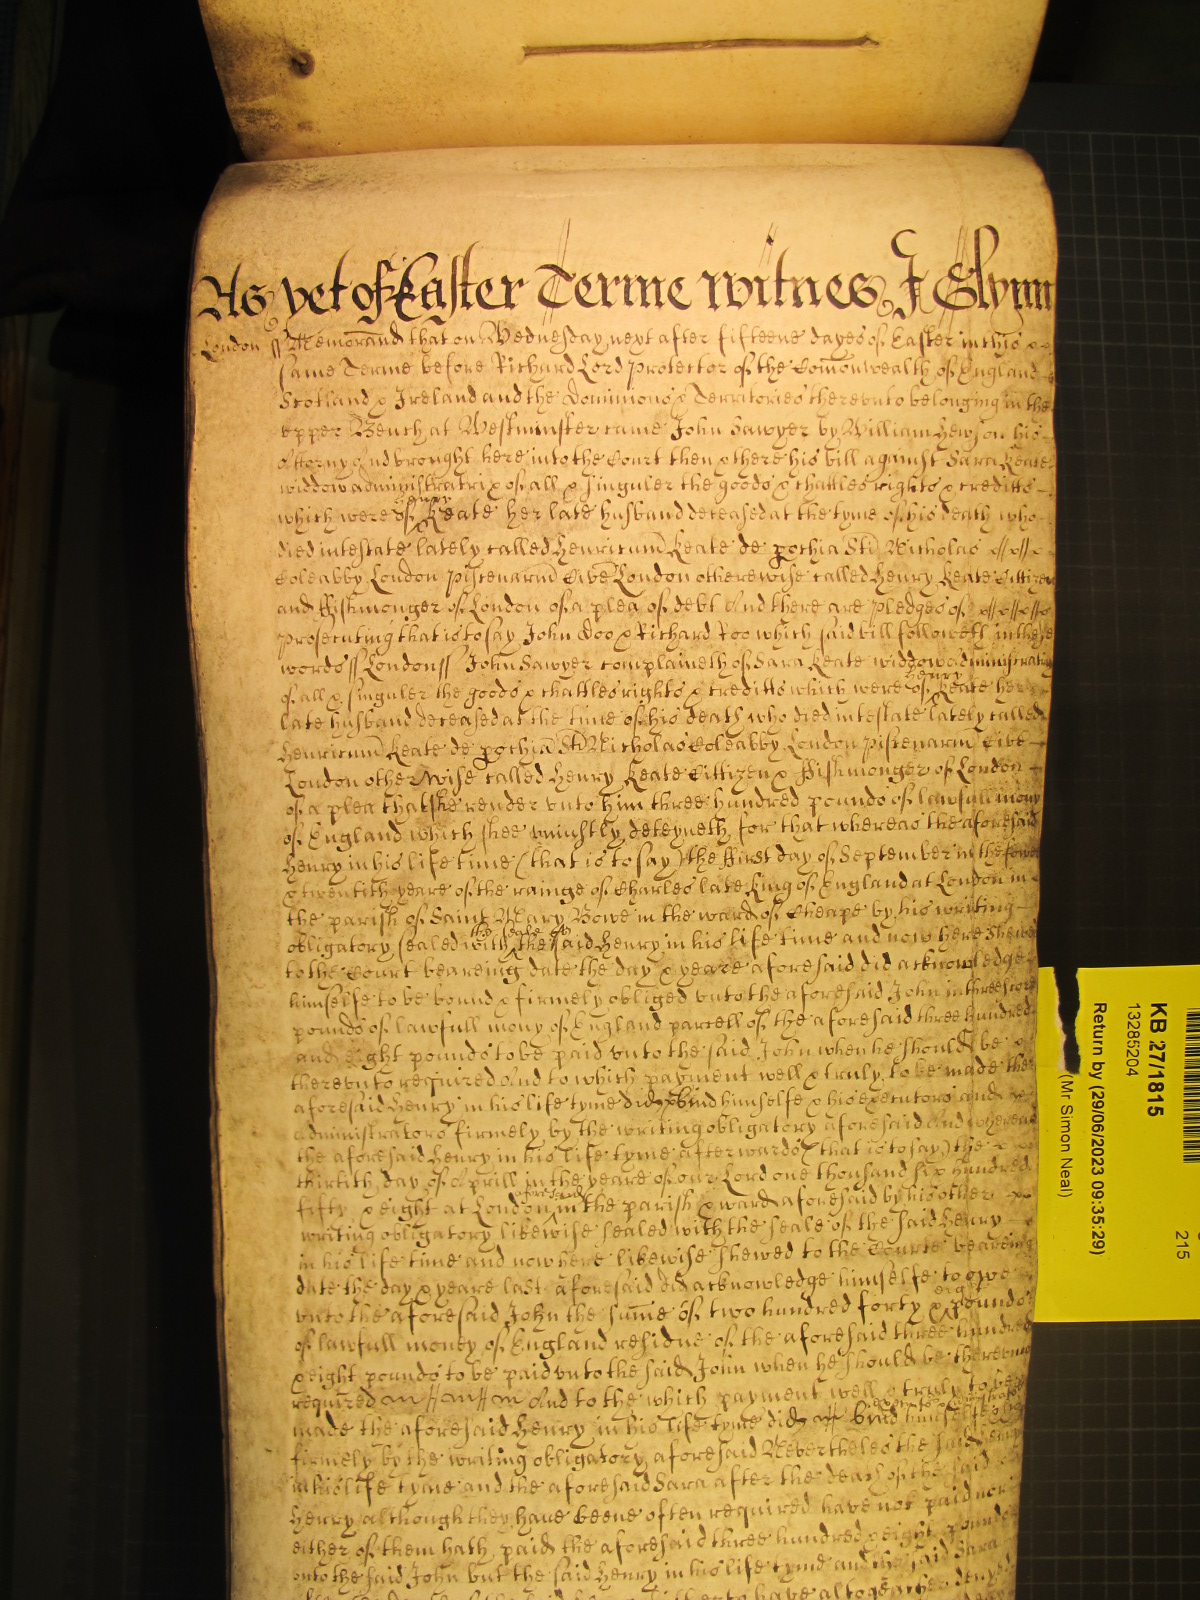 As yet of Easter Terme witnes J Glynn
London ss Memorand that on Wednesday next after fifteene dayes of Easter in this
same Terme before Richard Lord Protector of the Comonwealth of England
Scotland & Ireland and the Dominions & Territories therevnto belonging in the
vpper Bench at Westminster came John Sawyer by William Hewson his
Attorny And brought here into the Court then & there his bill against Sara Keate
widdow administratrix of all & singuler the goods & chattles rights & creditts
which were of Henry Keate her late husband deceased at the tyme of his death who
died intestate lately called Henricum Keate de pochia Sti Nicholas
Coleabby London piscenarm Civē London otherwise called Henry Keate Cittizen
and ffishmonger of London of a plea of debt And there are pledges of
prosecuting that is to say John Doo & Richard Roo which said bill followeth in these
words ss London ss John Sawyer complaineth of Sara Keate widdow administratrix
of all & singuler the goods & chattles rights & creditts which were of Henry Keate her
late husband deceased at the time of his death who died intestate lately called
Henricum Keate de pochia Sti Nicholas Coleabby London piscenarm Cive
London otherwise called Henry Keate Cittizen & ffishmonger of London
of a plea that she render vnto him three hundred pounds of lawfull mony
of England which shee vniustly deteyneth for that whereas the aforesaid
Henry in his life time (that is to say) the ffirst day of September in the
& twentith yeare of the rainge of Charles late King of England at London in
the parish of Saint Mary Bowe in the ward of Cheape by his writing
obligatory sealed with the seale of the said Henry in his life time and now here shewed
to the Court beareing date the day & yeare aforesaid did acknowledge
himselfe to be bound & firmely obliged vnto the aforesaid John in threescore
pounds of lawfull mony of England parcell of the aforesaid three hundred
and eight pounds to be paid vnto the said John when he should be
therevnto required And to which payment well & truly to be made the
aforesaid Henry in his life tyme did bind himselfe & his executors and
administrators firmely by the writing obligatory aforesaid And whereas
the aforesaid Henry in his life tyme afterwards (that is to say) the
thirtith day of Aprill in the yeare of our Lord one thousand six hundred
fifty & eight at London aforesaid in the parish & ward aforesaid by his other
writing obligatory likewise sealed with the seale of the said Henry
in his life time and now here likewise shewed to the Courte beareing
date the day & yeare last aforesaid did acknowledge himselfe to owe
vnto the aforesaid John the sume of two hundred forty & eight pounds
of lawfull money of England residue of the aforesaid three hundred
& eight pounds to be paid vnto the said John when he should be therevnto
required And to the which payment well & truly to be
made the aforesaid Henry in his life tyme did bind himselfe
firmely by the writing obligatory aforesaid Neverthelesse the said Henry
in his life tyme and the aforesaid Sara after the death of the said
Henry although they have beene often required have not paid nor
either of them hath paid the aforesaid three hundred & eight pounds
vnto the said John but the said Henry in his life tyme and the said Sara
to have altogether denyed
KB 27/1815
13285204
Return by (29/06/2023 09:35:29)
(Mr Simon Neal)
215